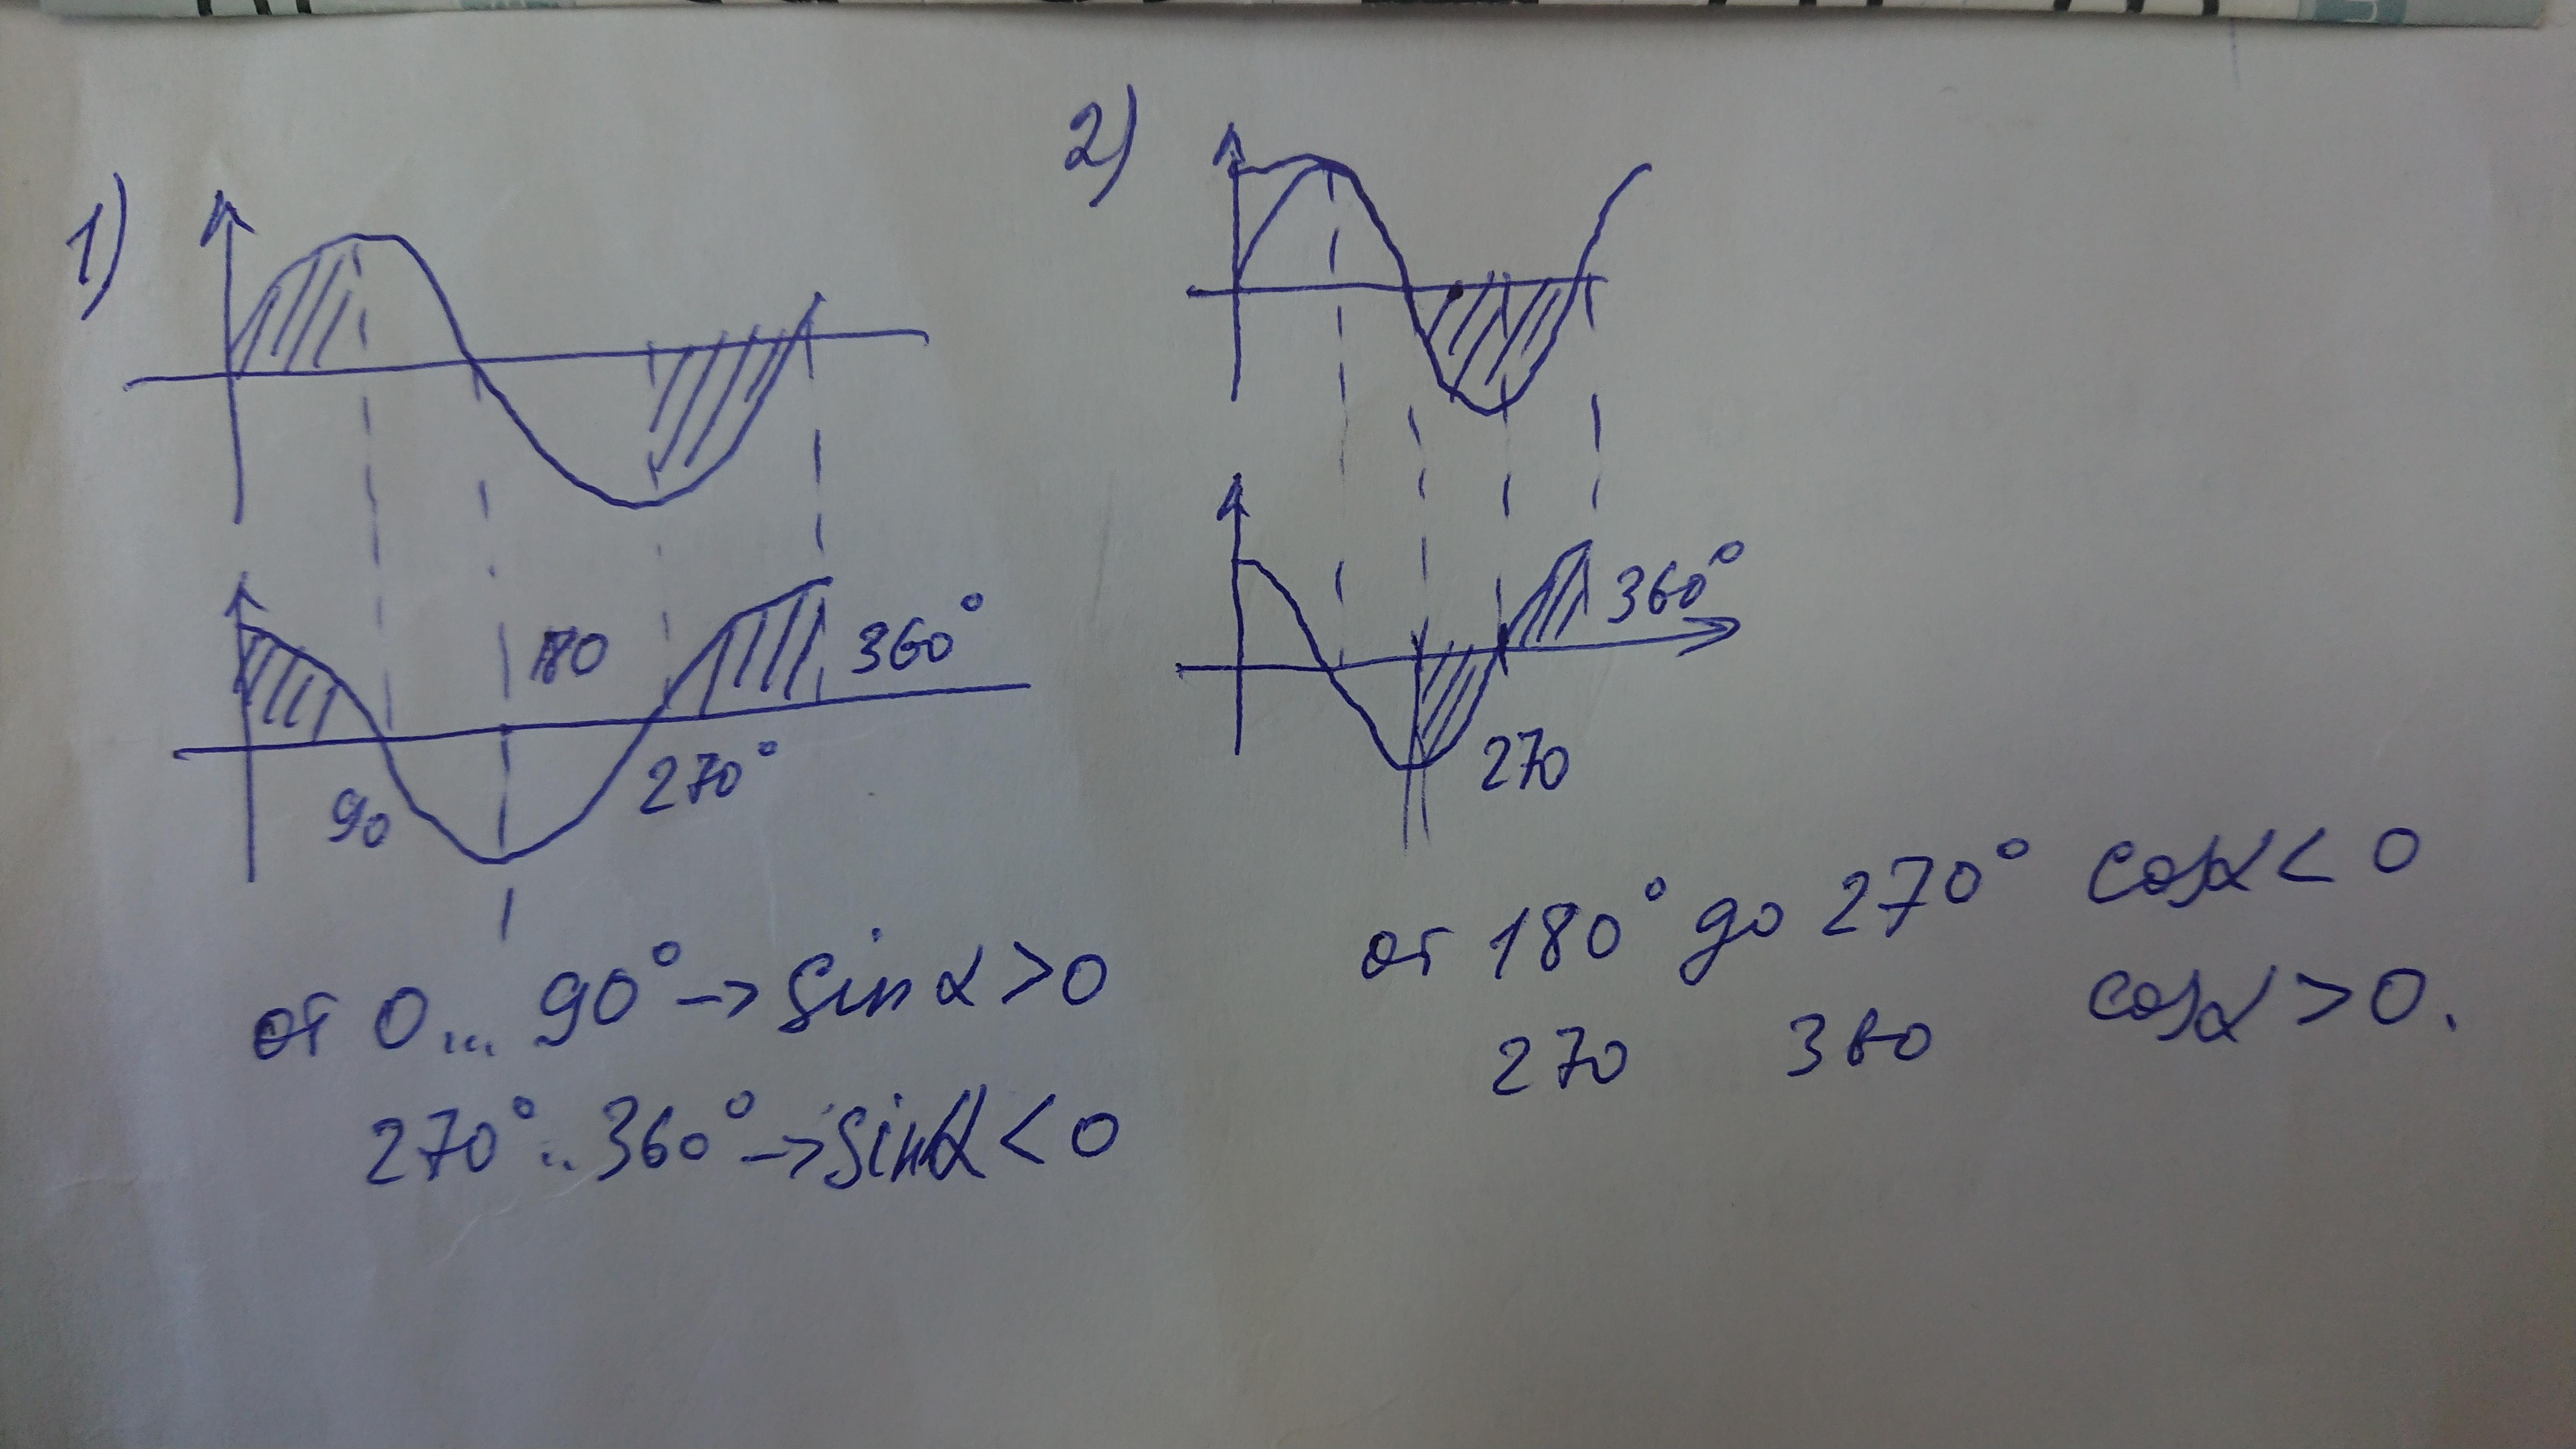 1)
180
360°
90
270°
от 0... 90° -> sin α > 0
270°.. 360° -> sin α < 0
2)
360°
270
от 180° до 270° cos α < 0
270 360 cos α > 0.